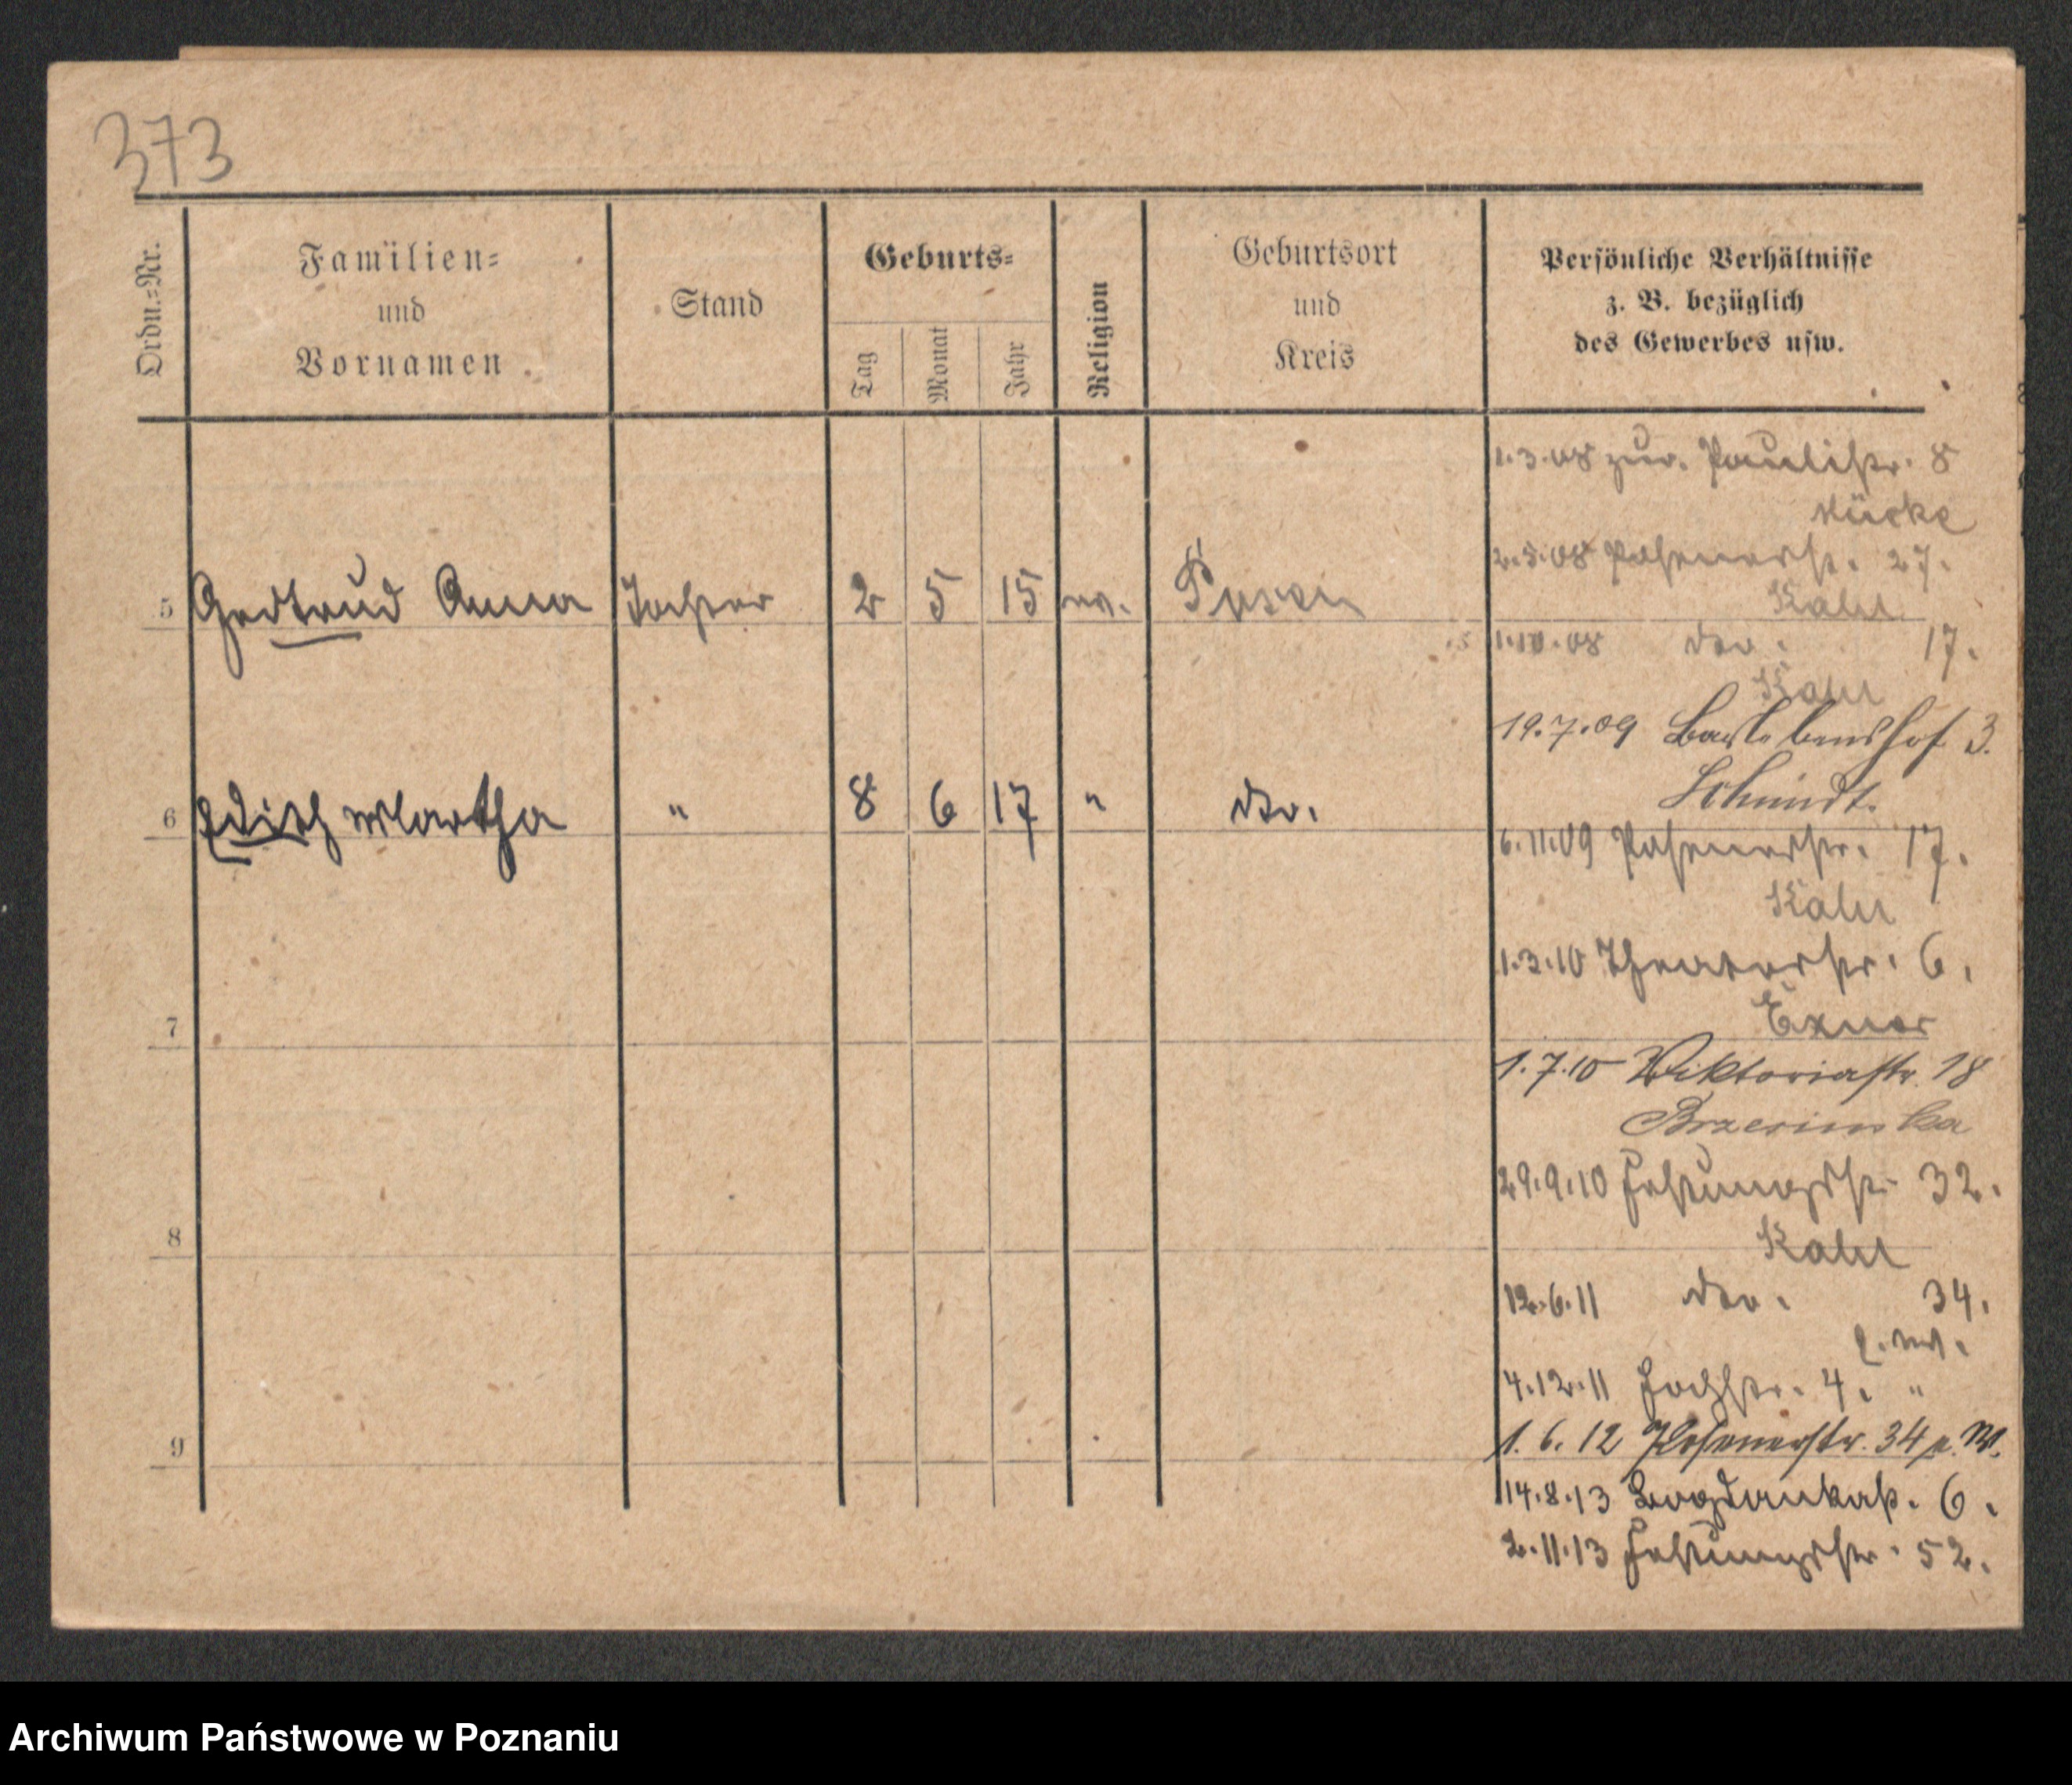 373
Ordn.=Nr.
Familien=
und
Vornamen
Stand
Geburts=
Tag
Monat
Jahr
Religion
Geburtsort
und
Kreis
Persönliche Verhältnisse
z. B. bezüglich
des Gewerbes usw.
1.3.08 zur. Paulistr. 8
Mücke
2.5.08 Posenerstr. 27.
5 Gertrud Anna Tochter 2 5 15 ev. Posen
1.10.08 dto. 17.
19.7.09 3.
Schmidt.
6 Edith Martha " 8 6 17 " dto.
6.11.09 Posenerstr. 17.
1.3.10 Theaterstr. 6.
Exner
7
1.7.10 Viktoriastr. 18
29.9.10 Festungsstr. 32.
8
12.6.11 dto. 34.
e. W.
4.12.11 Hochstr. 4. "
1.6.12 Posenerstr. 34 e. W.
9
14.8.13 Bogdankastr. 6.
2.11.13 Festungsstr. 52.
Archiwum Państwowe w Poznaniu